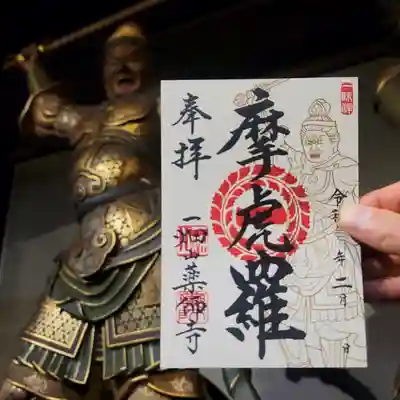 令和 年 二月 日
摩虎羅
奉拝
一畑山薬師寺